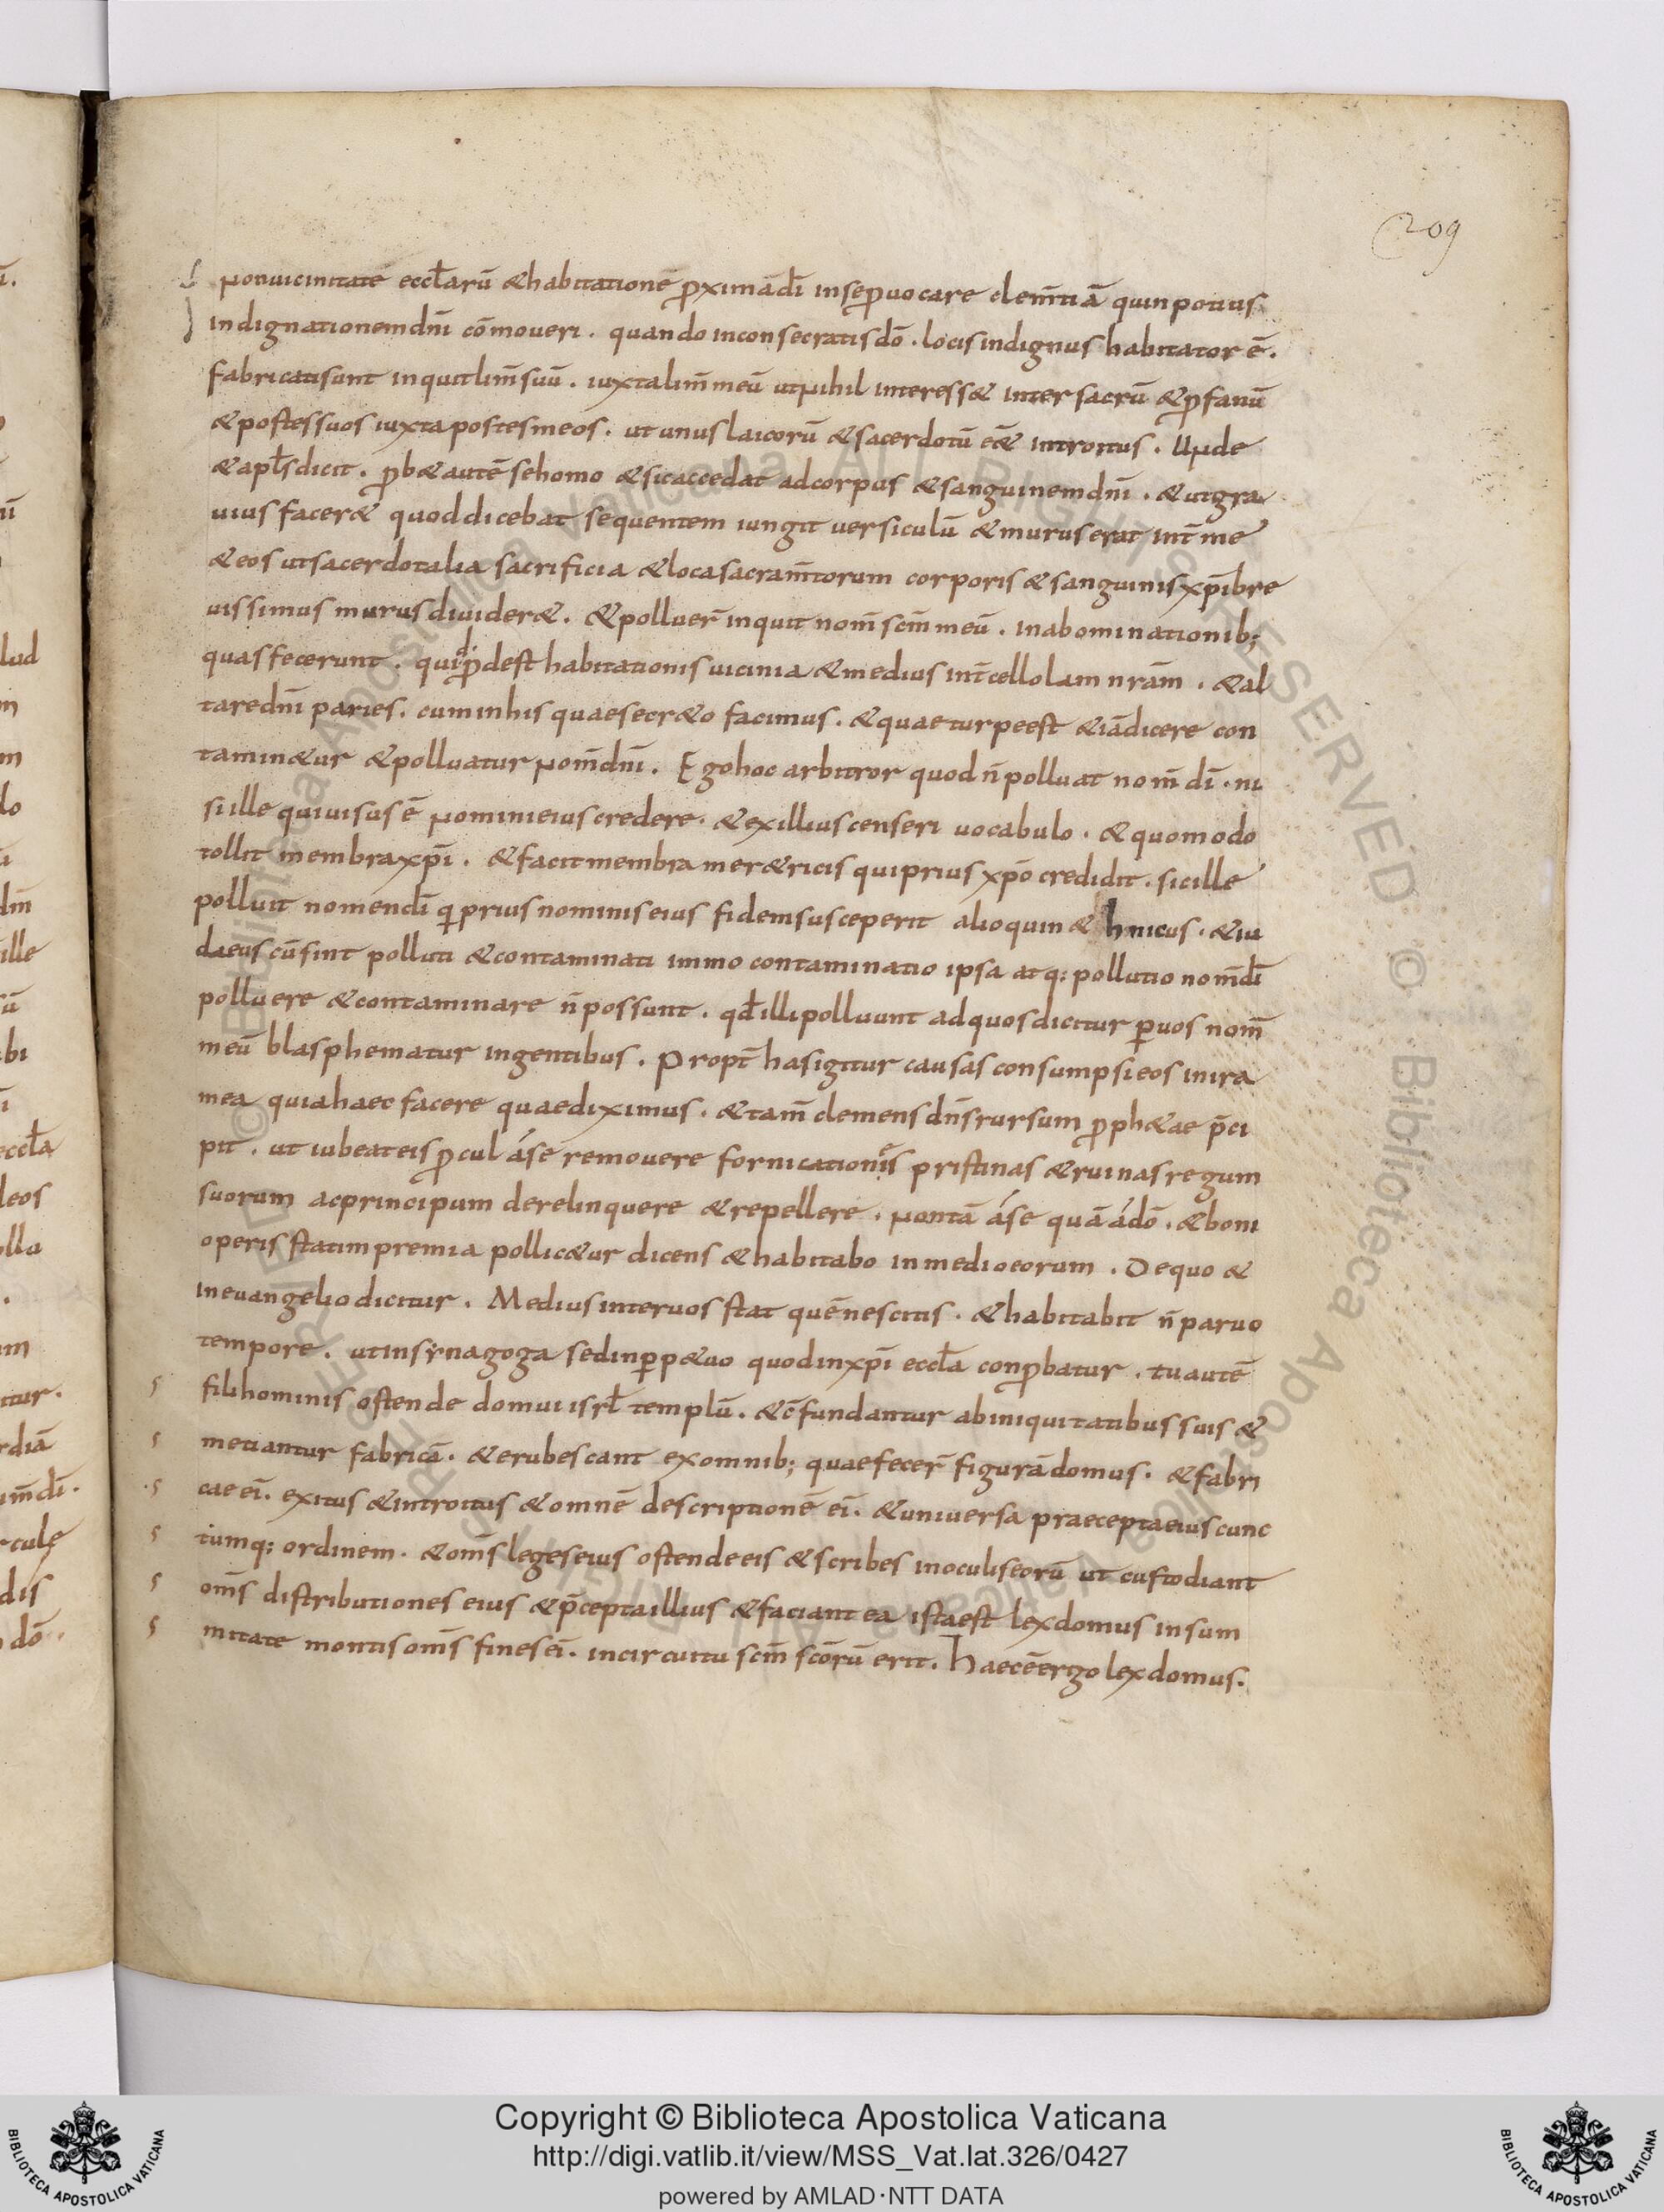 209
non uicinitate eccl̄arū & habitationē p̱ximā dī in se p̱uocare clem̄tiā quin potius
indignationem dn̄i cōmoueri . quando in consecratis dō . locis indignus habitator ē .
fabricati sunt inquit lim̄ suū . iuxta lim̄ meū ut nihil interess& inter sacrū & p̱fanū
& postes suos iuxta postes meos . ut unus laicorū & sacerdotū e& introitus . Unde
& apl̄s dicit . p̱b& autē se homo & sic accedat ad corpus & sanguinem dn̄i . & ut gra
uius facer& quod dicebat sequentem iungit uersiculū & murus erat int̄ me
& eos ut sacerdotalia sacrificia & loca sacram̄torum corporis & sanguinis xp̄i bre
uissimus murus diuider& . & polluer̄ inquit nom̄ scm̄ meū . in abominationib;
quas fecerunt . qui p̱dest habitationis uicinia & medius int̄ cellolam nrām . & al
tare dn̄i paries . cum in his quae secr&o facimus . & quae turpe est &iā dicere con
tamin&ur & polluatur nom̄ dn̄i . Ego hoc arbitror quod n̄ polluat nom̄ dī . ni
si ille qui uisus ē nomini eius credere . & ex illius censeri uocabulo . & quomodo
tollit membra xp̄i . & facit membra mer&ricis qui prius xp̄o credidit . sic ille
polluit nomen dī q prius nominis eius fidem susceperit alioquin & hnicus . & iu
daeus cū sint polluti & contaminati immo contaminatio ipsa atq: pollutio nom̄ dī
polluere & contaminare n̄ possunt . qd̄ illi polluunt ad quos dicitur p̱ uos nom̄
meū blasphematur in gentibus . Propt̄ has igitur causas consumpsi eos in ira
mea quia haec facere quae diximus . & tam̄ clemens dn̄s rursum p̱ph&ae p̄ci
pit . ut iubeat eis p̱cul á se remouere fornicationis pristinas & ruinas regum
suorum ac principum derelinquere & repellere . non tā á se quā á dō . & boni
operis statim premia pollic&ur dicens & habitabo in medio eorum . De quo &
in euangelio dicitur . Medius inter uos stat quē nescitis . & habitabit n̄ paruo
tempore . ut in synagoga sed in p̱p&uo quod in xp̄i eccl̄a conp̱batur . tu autē
fili hominis ostende domui isrl̄ templū . & c̄fundantur ab iniquitatibus suis &
metiantur fabricā . & erubescant ex omnib; quae fecer̄ figurā domus . & fabri
cae ei̅ . exitus & introitus & omnē descriptionē ei̅ . & uniuersa praecepta eius cunc
tumq: ordinem . & om̄s leges eius ostende eis & scribes in oculis eorū ut custodiant
om̄s distributiones eius & p̄cepta illius & faciant ea ista est lex domus in sum
mitate montis om̄s fines ei̅ . in circuitu scm̄ scōrū erit . Haec ē ergo lex domus .
Copyright © Biblioteca Apostolica Vaticana
http://digi.vatlib.it/view/MSS_Vat.lat.326/0427
powered by AMLAD·NTT DATA
BIBLIOTECA APOSTOLICA VATICANA
BIBLIOTECA APOSTOLICA VATICANA